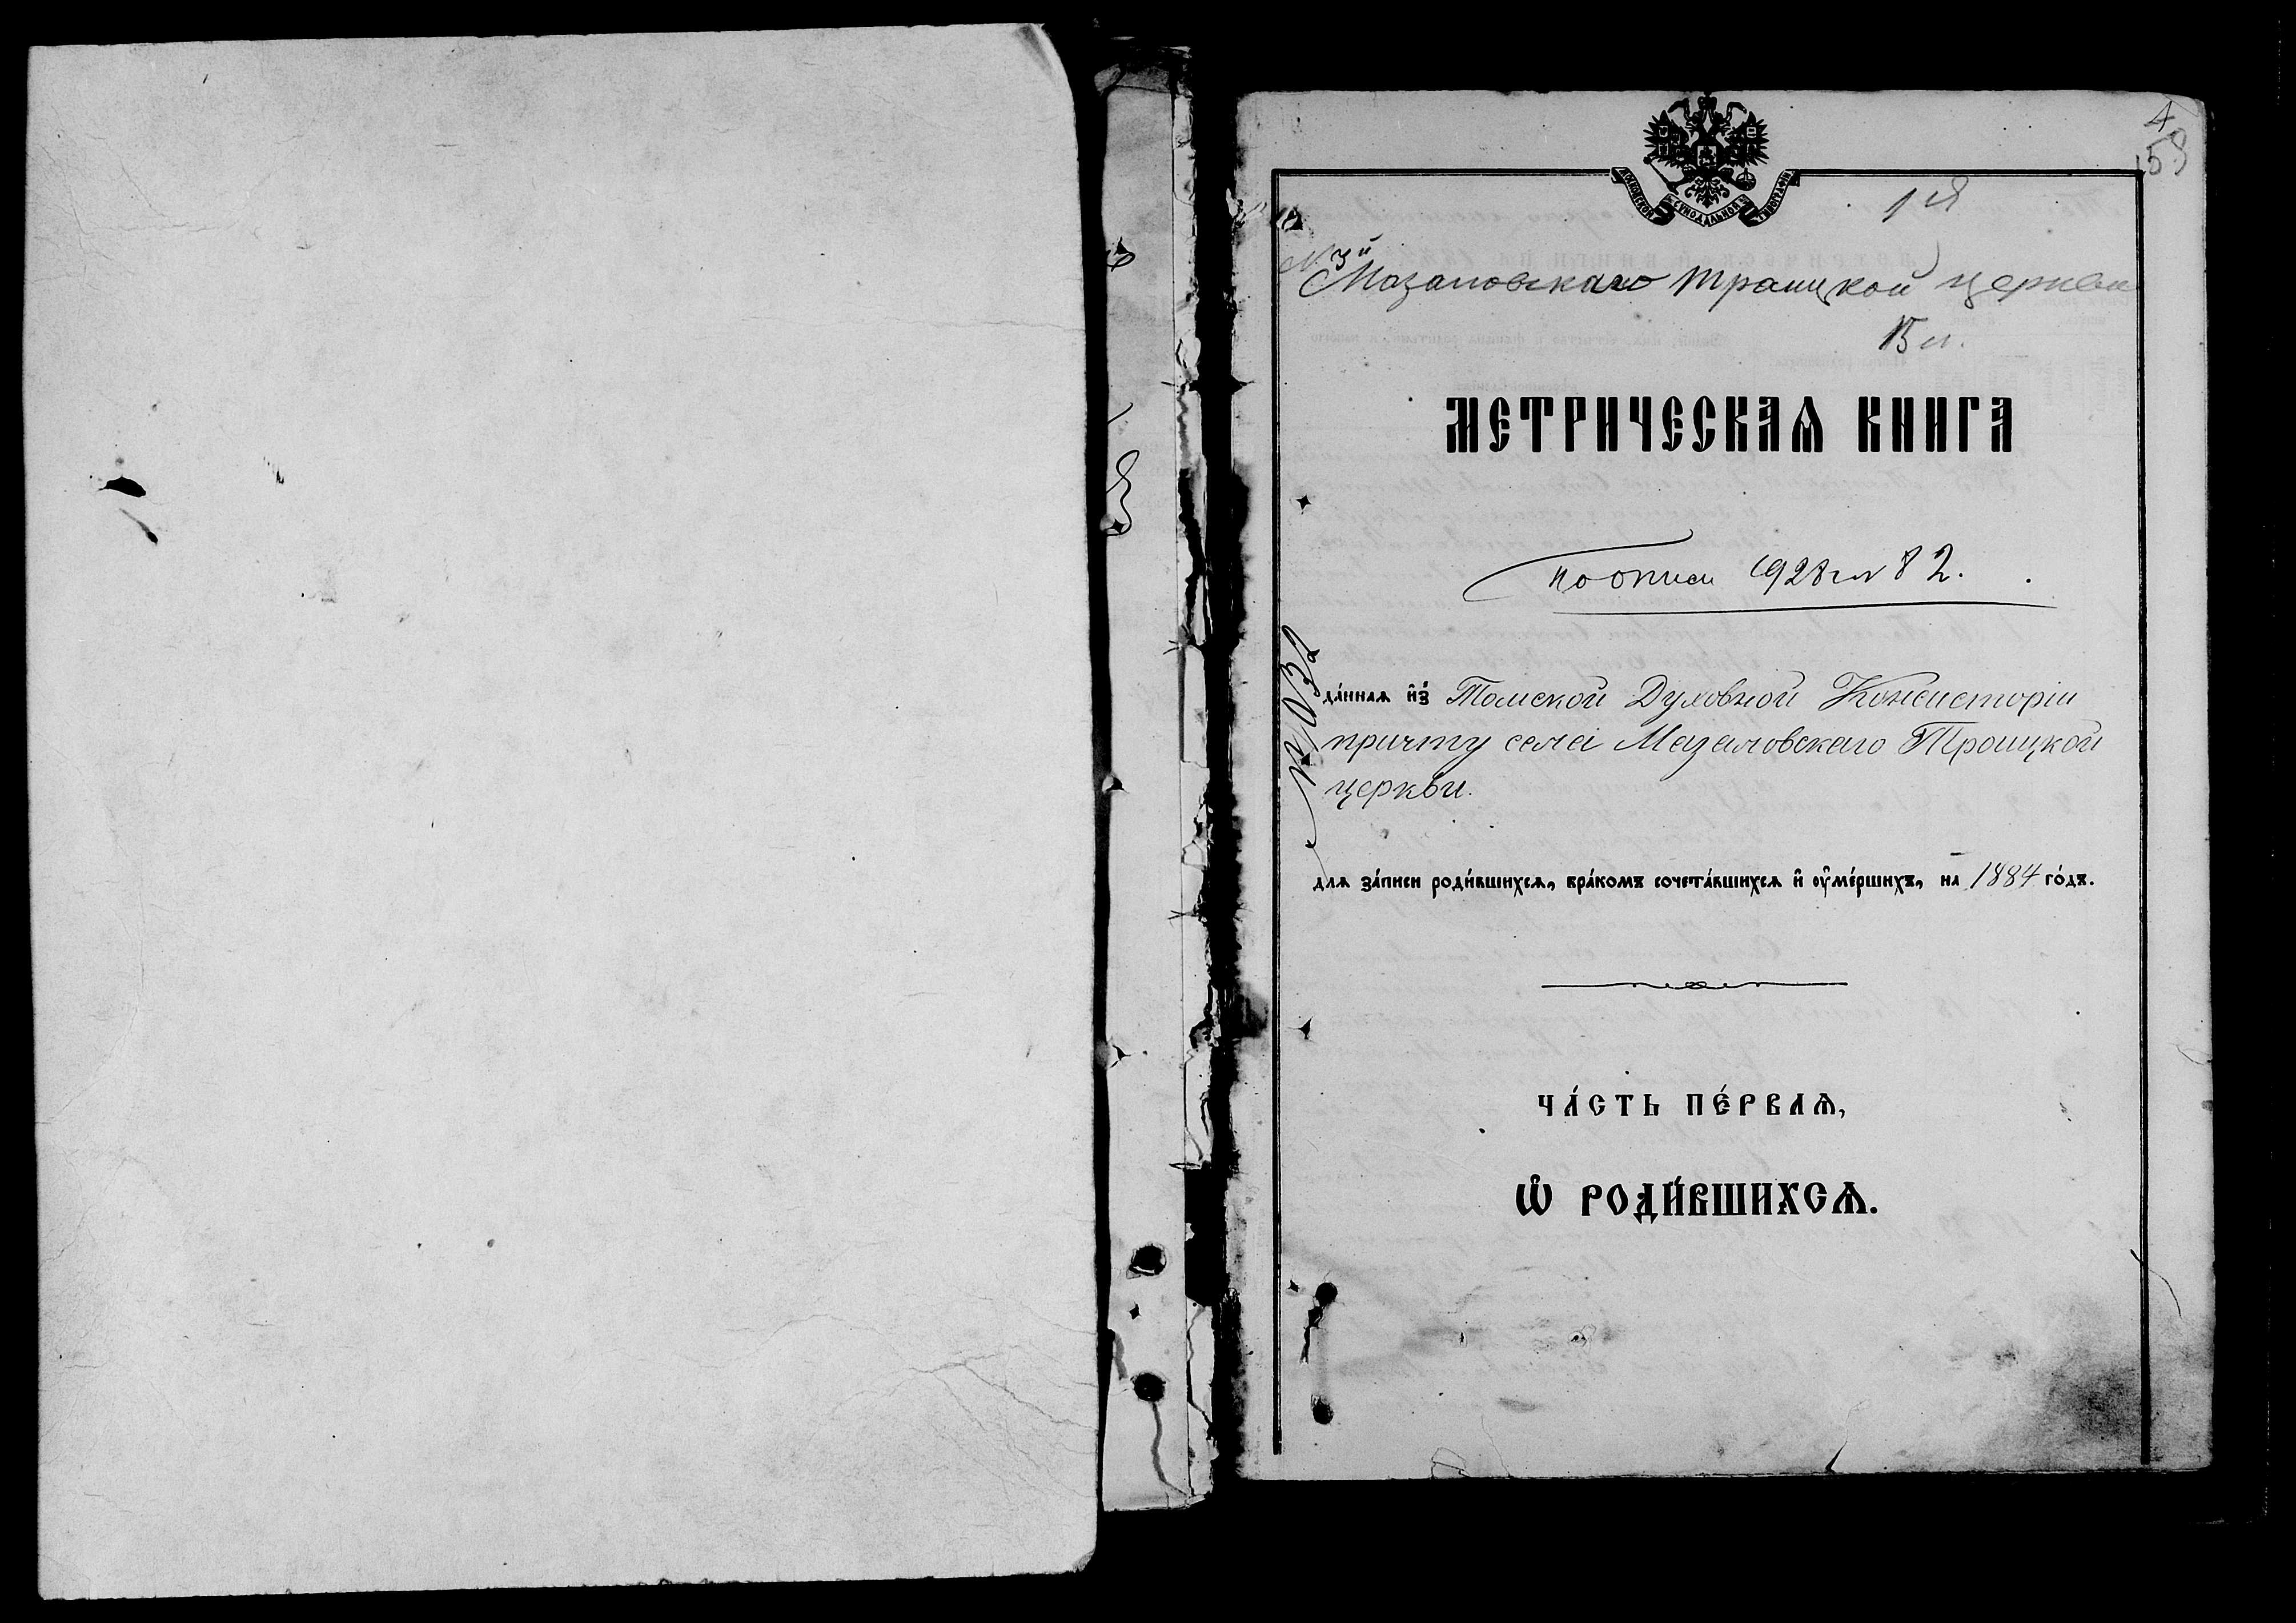 4
158
МОСКОВСКОЙ СѴНОДАЛЬНОЙ ТИПОГРАФІИ
1 й
N 3й
Мазаловскаго троицкой церкви
15 л.
МЕТРИЧЕСКАѦ КНИГА
По описи 1928 г № 82.
да́ннаѧ и҆зъ Томской Духовной Консисторіи
причту села Мазаловскаго Троицкой
церкви.
длѧ за́писи роди́вшихсѧ, бра́комъ сочета́вшихсѧ и҆ ᲂу҆ме́ршихъ, на 1884 го́дъ.
ЧА́СТЬ ПЕ́РВАѦ,
Ѽ РОДИ́ВШИХСѦ.